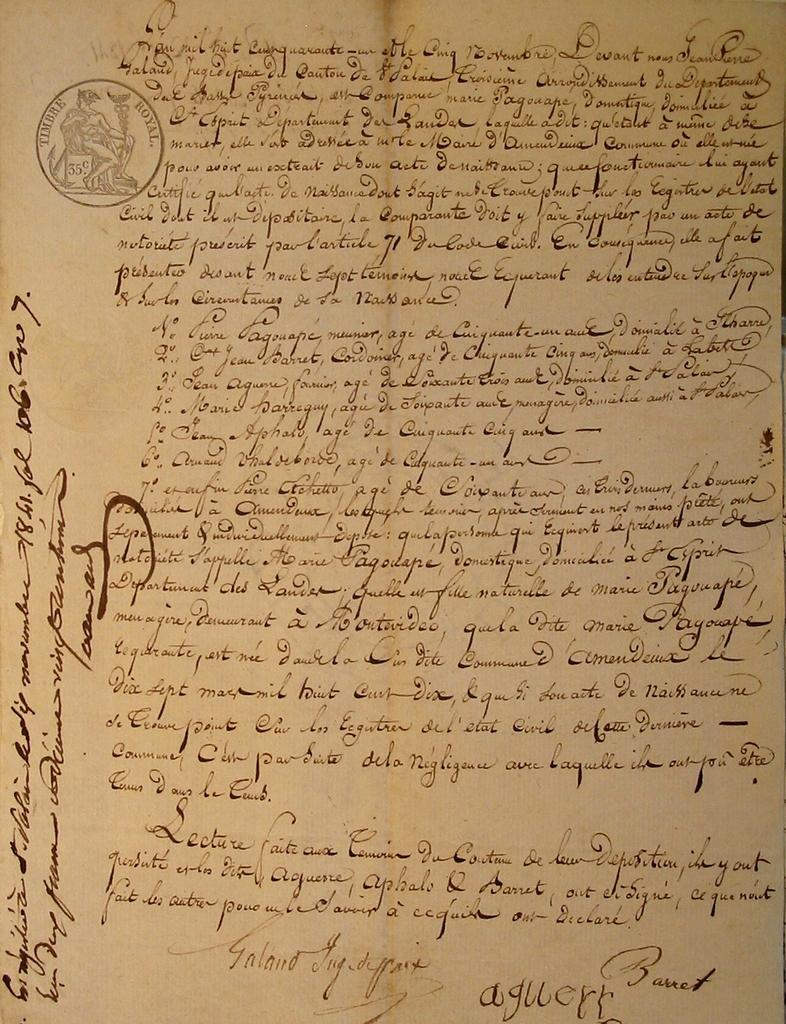 L'an mil huit cent quarante-un et le cinq Novembre, Devant nous Jean Pierre
Galaud, Juge de paix du Canton de St Palais, troisième arrondissement du Département
des Basses Pyrénées, est Comparue marie Pagouapé, domestique, domiciliée à
St Esprit Département des Landes, laquelle a dit : qu'étant à même de se
marier, elle s'est adressée à M. le Maire d'Amendeuix Commune où elle est née
pour avoir un extrait de son acte de naissance ; que ce fonctionnaire lui ayant
Certifié que l'acte de Naissance dont s'agit ne se trouve point sur les Registres de l'état
Civil dont il est dépositaire, la Comparante doit y faire suppléer par un acte de
notoriété prescrit par l'article 71 du Code Civil. En Conséquence, elle a fait
présenter devant nous sept témoins, nous Requérant de les entendre sur l'époque
& sur les Circonstances de sa Naissance.
1o. Pierre Pagouapé, meunier, agé de Cinquante-un ans, domicilié à Itharre,
2o. Jean Barret, Cordonier, agé de Cinquante Cinq ans, domicilié à Labets,
3o. Jean Aguerre, agé de Soixante trois ans, domicilié à St Palais,
4o. Marie Barreguy, agée de Soixante ans, menagère, domiciliée aussi à St Palais,
5o. Jean Aphalo, agé de Cinquante Cinq ans —
6o. Arnaud Uhaldeborde, agé de Cinquante-un ans —
7o. et enfin Pierre Etchetto, agé de Soixante ans, ces trois derniers, laboureurs
domiciliés à Amendeux, lesquels témoins, après serment en nos mains prêté, ont
séparément & individuellement déposé : que la personne qui Requiert le présent acte de
notoriété s'appelle Marie Pagouapé, domestique, domiciliée à St Esprit,
Département des Landes ; qu'elle est fille naturelle de marie Pagouapé,
menagère, demeurant à Montevideo, que la dite marie Pagouapé
Requérante, est née dans la Sus dite Commune d'Amendeux le
Dix sept mars mil huit cent dix, & que si son acte de Naissance ne
se trouve point sur les Registres de l'état Civil de Cette Dernière —
Commune, C'est par suite de la Négligence avec laquelle ils ont pû être
tenus dans le tems.
Lecture faite aux témoins du Contenu de leur déposition, ils y ont
persisté et les dits Aguerre, Aphalo & Barret, ont si Signé, ce que n'ont
fait les autres pour ne le Savoir à ce qu'ils ont déclaré.
Galaud Juge de paix
aguerr
Barret
TIMBRE ROYAL.
35 c
Enregistré à St Palais le dix novembre 1841. fol. 106. Cse 7.